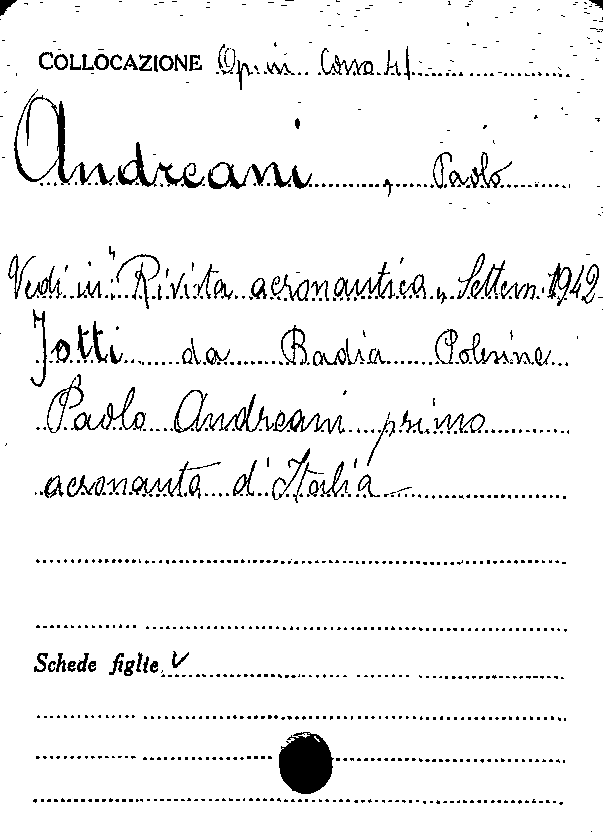 COLLOCAZIONE Op. in
Andreani, Paolo
Vedi in "Rivista aeronautica" Settem. 1942
Jotti da Badia Polesine
Paolo Andreani primo
aeronauta d'Italia
Schede figlie. V